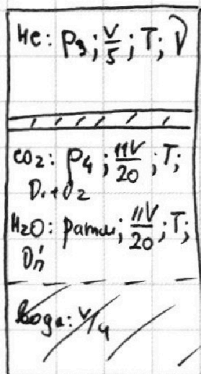 He: P₃; V/5; T; ν
CO₂: P₄; 11V/20; T;
ν₁+ν₂
H₂O: Pатм; 11V/20; T;
νп'
Вода: V/4